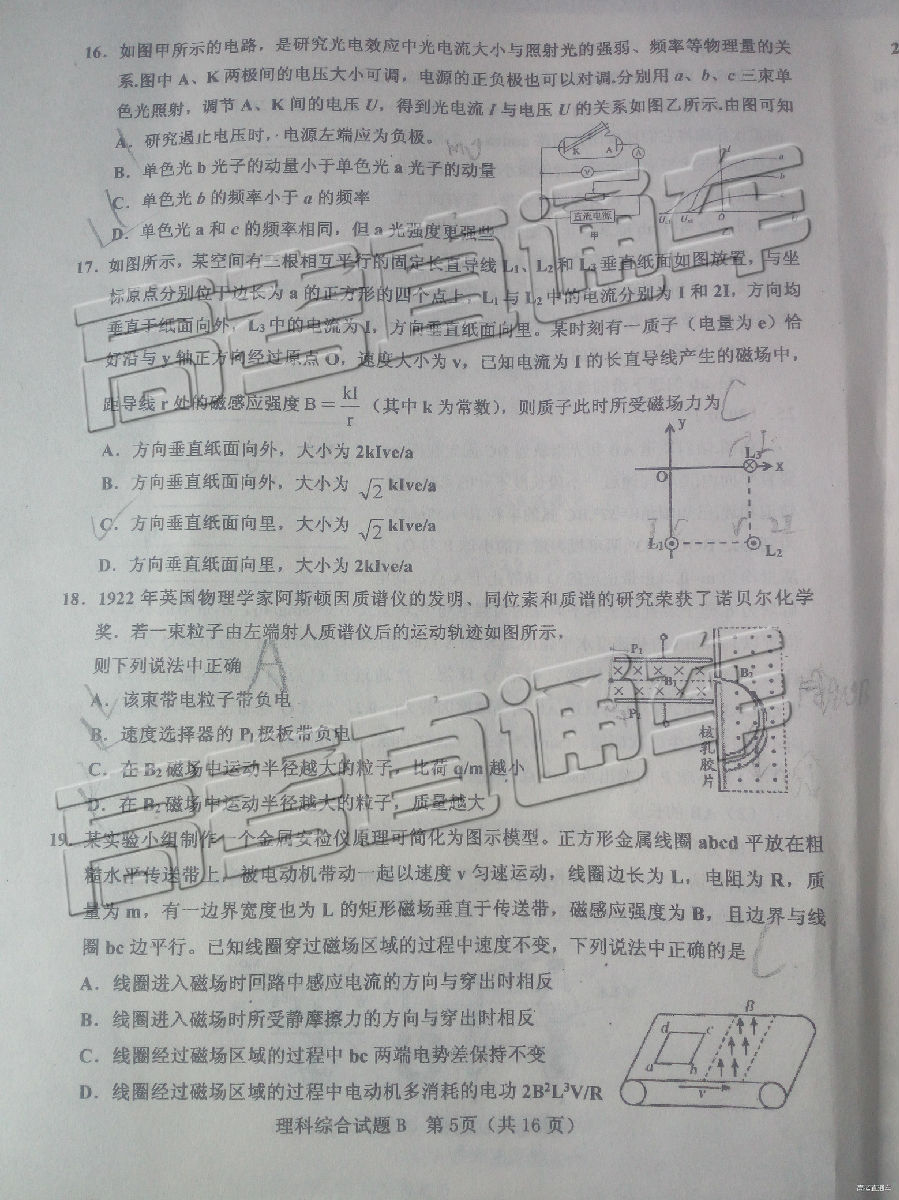 16．如图甲所示的电路，是研究光电效应中光电流大小与照射光的强弱、频率等物理量的关
系.图中 A、K 两极间的电压大小可调，电源的正负极也可以对调.分别用 a、b、c 三束单
色光照射，调节 A、K 间的电压 U，得到光电流 I 与电压 U 的关系如图乙所示.由图可知
A．研究遏止电压时，电源左端应为负极。
B．单色光 b 光子的动量小于单色光 a 光子的动量
C．单色光 b 的频率小于 a 的频率
D．单色光 a 和 c 的频率相同，但 a 光强度更强些
K A A
V
直流电源
甲
I
a
b
c
Uc1 Uc2 O U
17．如图所示，某空间有三根相互平行的固定长直导线 L₁、L₂和 L₃ 垂直纸面如图放置，与坐
标原点分别位于边长为 a 的正方形的四个点上，L₁ 与 L₂ 中的电流分别为 I 和 2I，方向均
垂直于纸面向外，L₃ 中的电流为 I，方向垂直纸面向里。某时刻有一质子（电量为 e）恰
好沿与 y 轴正方向经过原点 O，速度大小为 v，已知电流为 I 的长直导线产生的磁场中，
距导线 r 处的磁感应强度 B＝kI/r（其中 k 为常数），则质子此时所受磁场力为
A．方向垂直纸面向外，大小为 2kIve/a
B．方向垂直纸面向外，大小为 √2 kIve/a
C．方向垂直纸面向里，大小为 √2 kIve/a
D．方向垂直纸面向里，大小为 2kIve/a
y
O L₃ x
L₁ L₂
18．1922 年英国物理学家阿斯顿因质谱仪的发明、同位素和质谱的研究荣获了诺贝尔化学
奖．若一束粒子由左端射人质谱仪后的运动轨迹如图所示，
则下列说法中正确
A
A．该束带电粒子带负电
B．速度选择器的 P₁ 极板带负电
C．在 B₂ 磁场中运动半径越大的粒子，比荷 q/m 越小
D．在 B₂ 磁场中运动半径越大的粒子，质量越大
P₁
B₁
P₂
B₂
核乳胶片
19．某实验小组制作一个金属安检仪原理可简化为图示模型。正方形金属线圈 abcd 平放在粗
糙水平传送带上，被电动机带动一起以速度 v 匀速运动，线圈边长为 L，电阻为 R，质
量为 m，有一边界宽度也为 L 的矩形磁场垂直于传送带，磁感应强度为 B，且边界与线
圈 bc 边平行。已知线圈穿过磁场区域的过程中速度不变，下列说法中正确的是
A．线圈进入磁场时回路中感应电流的方向与穿出时相反
B．线圈进入磁场时所受静摩擦力的方向与穿出时相反
C．线圈经过磁场区域的过程中 bc 两端电势差保持不变
D．线圈经过磁场区域的过程中电动机多消耗的电功 2B²L³V/R
B
d c
a b
v
理科综合试题 B 第 5页（共 16 页）
高考直通车
高考直通车
高考直通车